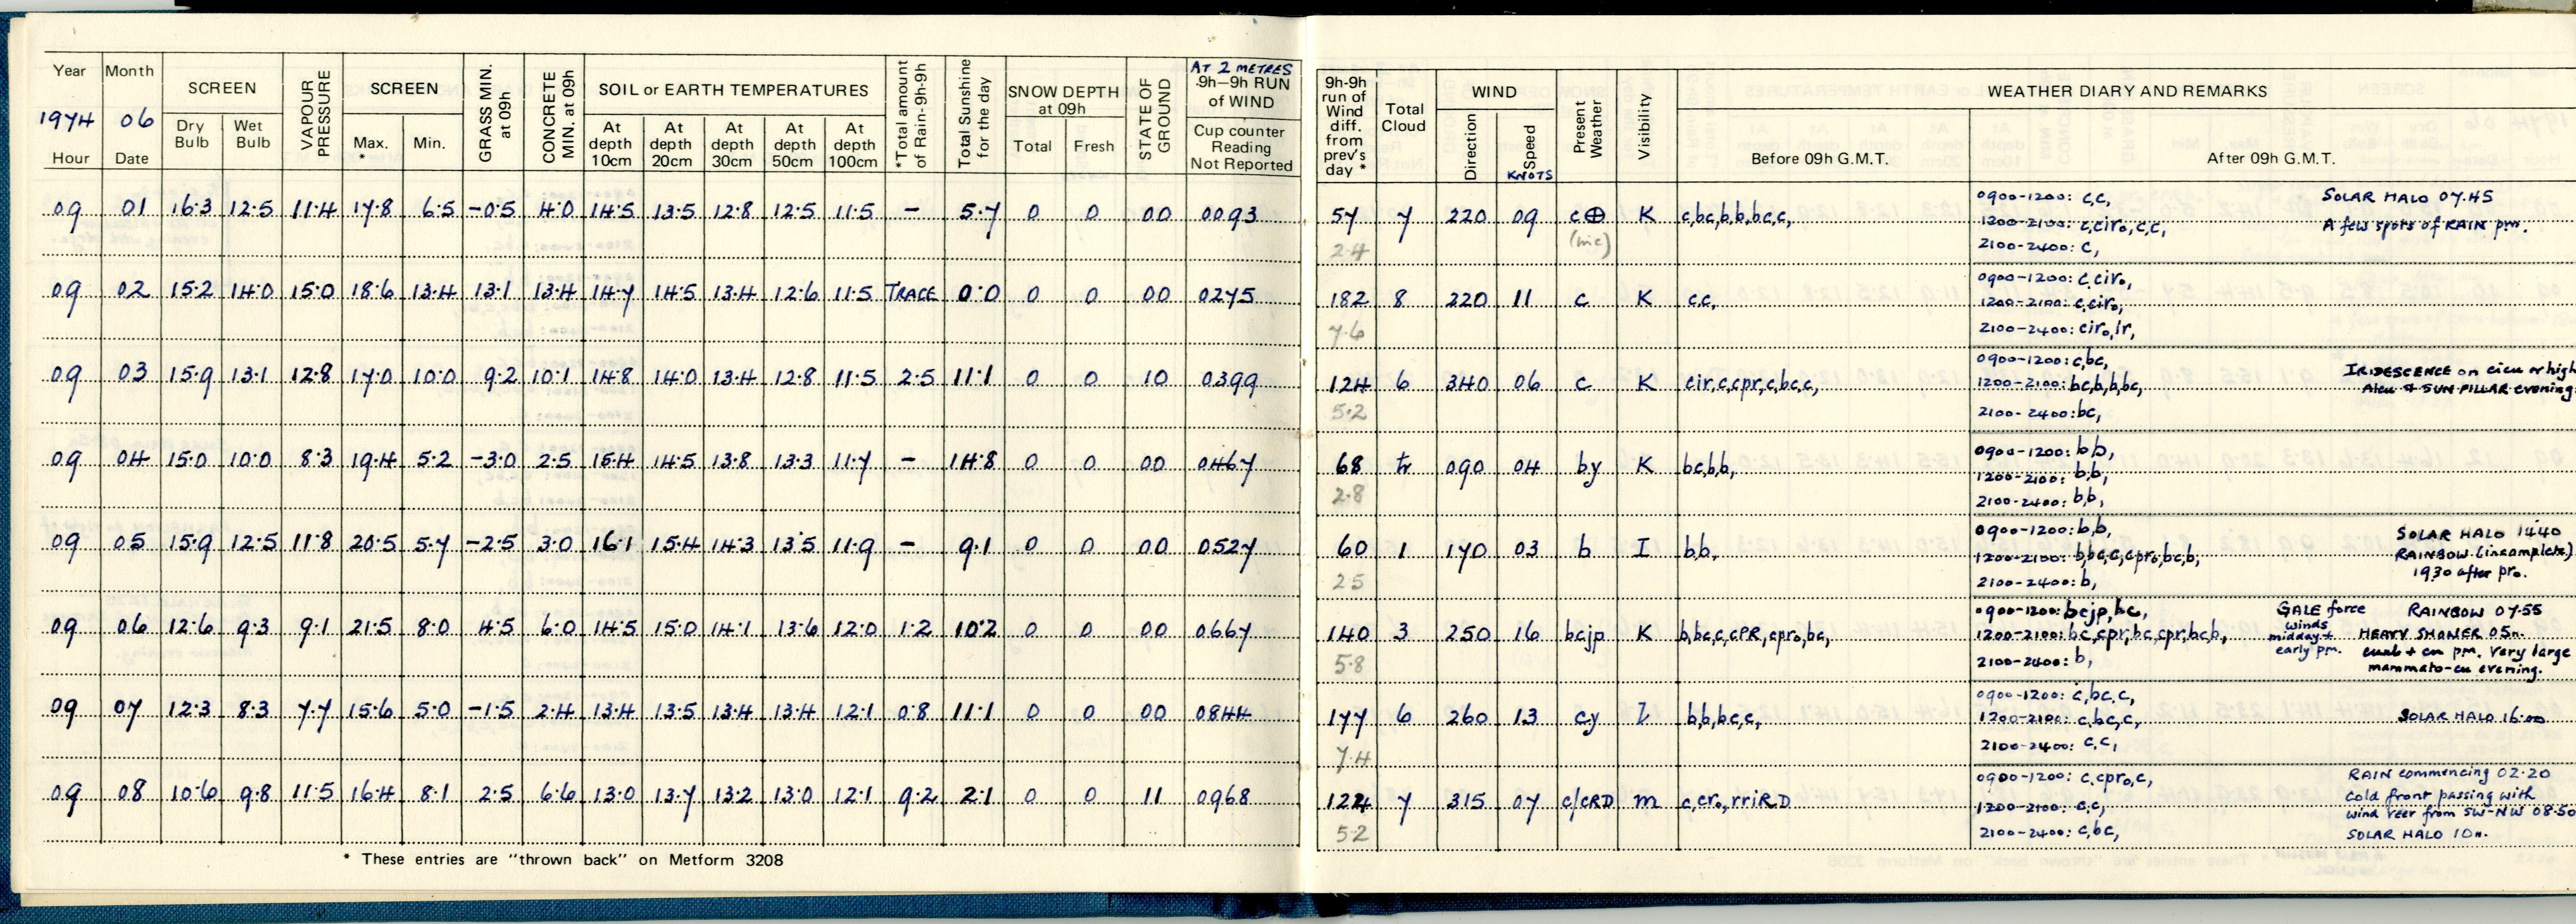 Year Month SCREEN VAPOUR PRESSURE SCREEN GRASS MIN. at 09h CONCRETE MIN. at 09h SOIL or EARTH TEMPERATURES *Total amount of Rain-9h-9h Total Sunshine for the day SNOW DEPTH at 09h STATE OF GROUND AT 2 METRES 9h-9h RUN of WIND
1974 06 Dry Bulb Wet Bulb Max. * Min. At depth 10cm At depth 20cm At depth 30cm At depth 50cm At depth 100cm Total Fresh Cup counter Reading Not Reported
Hour Date
09 01 16.3 12.5 11.4 17.8 6.5 -0.5 4.0 14.5 13.5 12.8 12.5 11.5 - 5.7 0 0 00 0093
09 02 15.2 14.0 15.0 18.6 13.4 13.1 13.4 14.7 14.5 13.4 12.6 11.5 TRACE 0.0 0 0 00 0275
09 03 15.9 13.1 12.8 17.0 10.0 9.2 10.1 14.8 14.0 13.4 12.8 11.5 2.5 11.1 0 0 10 0399
09 04 15.0 10.0 8.3 19.4 5.2 -3.0 2.5 15.4 14.5 13.8 13.3 11.7 - 14.8 0 0 00 0467
09 05 15.9 12.5 11.8 20.5 5.7 -2.5 3.0 16.1 15.4 14.3 13.5 11.9 - 9.1 0 0 00 0527
09 06 12.6 9.3 9.1 21.5 8.0 4.5 6.0 14.5 15.0 14.1 13.6 12.0 1.2 10.2 0 0 00 0667
09 07 12.3 8.3 7.7 15.6 5.0 -1.5 2.4 13.4 13.5 13.4 13.4 12.1 0.8 11.1 0 0 00 0844
09 08 10.6 9.8 11.5 16.4 8.1 2.5 6.6 13.0 13.7 13.2 13.0 12.1 9.2 2.1 0 0 11 0968
* These entries are "thrown back" on Metform 3208
9h-9h run of Wind diff. from prev's day * Total Cloud WIND Present Weather Visibility WEATHER DIARY AND REMARKS
Direction Speed KNOTS Before 09h G.M.T. After 09h G.M.T.
57 7 220 09 c⊕ K c,bc,b,b,bc,c, 0900-1200: c,c, SOLAR HALO 07.45
2.4 (mic) 1200-2100: c,ciro,c,c, A few spots of RAIN pm.
2100-2400: c,
182 8 220 11 c K c,c, 0900-1200: c,ciro,
7.6 1200-2100: c,ciro,
2100-2400: ciro,ir,
124 6 340 06 c K cir,c,cpr,c,bc,c, 0900-1200: c,bc, IRIDESCENCE on cicu or high
5.2 1200-2100: bc,b,b,bc, Alcu & SUN PILLAR evening
2100-2400: bc,
68 tr 090 04 by K bc,b,b, 0900-1200: b,b,
2.8 1200-2100: b,b,
2100-2400: b,b,
60 1 170 03 b I b,b, 0900-1200: b,b, SOLAR HALO 1440
25 1200-2100: b,bc,c,cpro,bc,b, RAINBOW (incomplete)
2100-2400: b, 1930 after pro.
140 3 250 16 bcjp K b,bc,c,cPR,cpro,bc, 0900-1200: bcjp,bc, GALE force winds midday + early pm. RAINBOW 07.55
5.8 1200-2100: bc,cpr,bc,cpr,bc,b, HEAVY SHOWER 05n.
2100-2400: b, cunb + cu pm. Very large
mammato-cu evening.
177 6 260 13 cy b,b,bc,c, 0900-1200: c,bc,c,
7.4 1200-2100: c,bc,c, SOLAR HALO 16.00
2100-2400: c,c,
124 7 315 07 c/cRD m c,cro,rriRD 0900-1200: c,cpro,c, RAIN commencing 02.20
5.2 1200-2100: c,c, Cold front passing with
wind veer from SW-NW 08.50
2100-2400: c,bc, SOLAR HALO 10n.